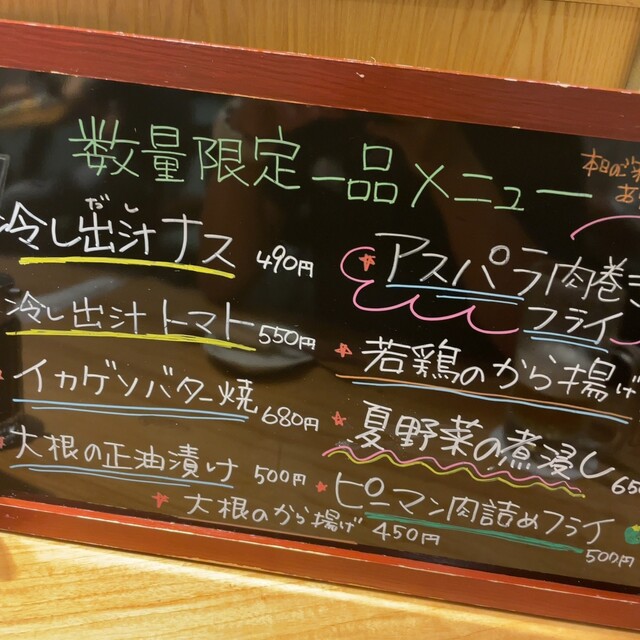 数量限定一品メニュー
本日のご
だし
冷し出汁ナス 490円
冷し出汁トマト 550円
イカゲソバター焼 680円
大根の正油漬け 500円
大根のから揚げ 450円
アスパラ肉巻
フライ
若鶏のから揚げ
夏野菜の煮浸し
65
ピーマン肉詰めフライ
500円